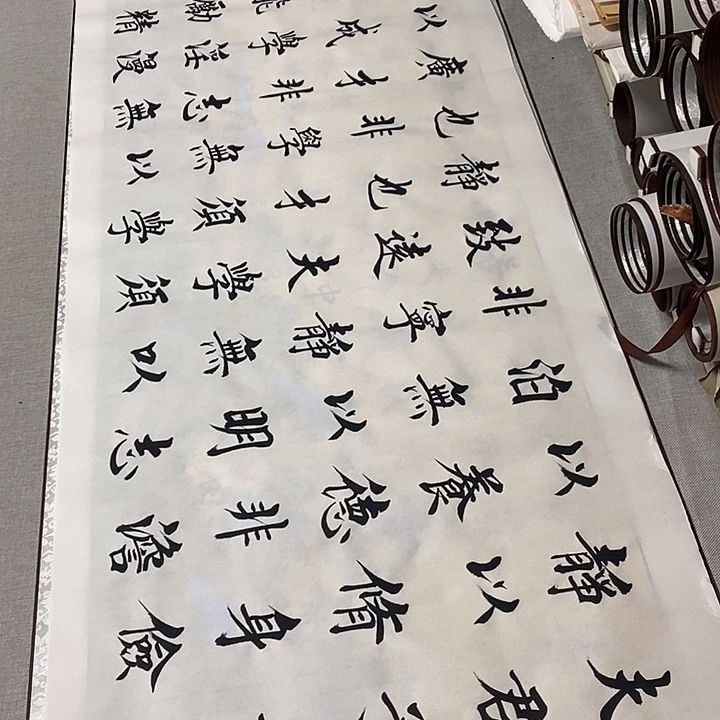 夫君
靜以脩身儉
以養德非澹
泊無以明志
非寧靜無以
致遠夫學須
靜也才須學
也非學無以
廣才非志無
以成學淫漫
能勵精